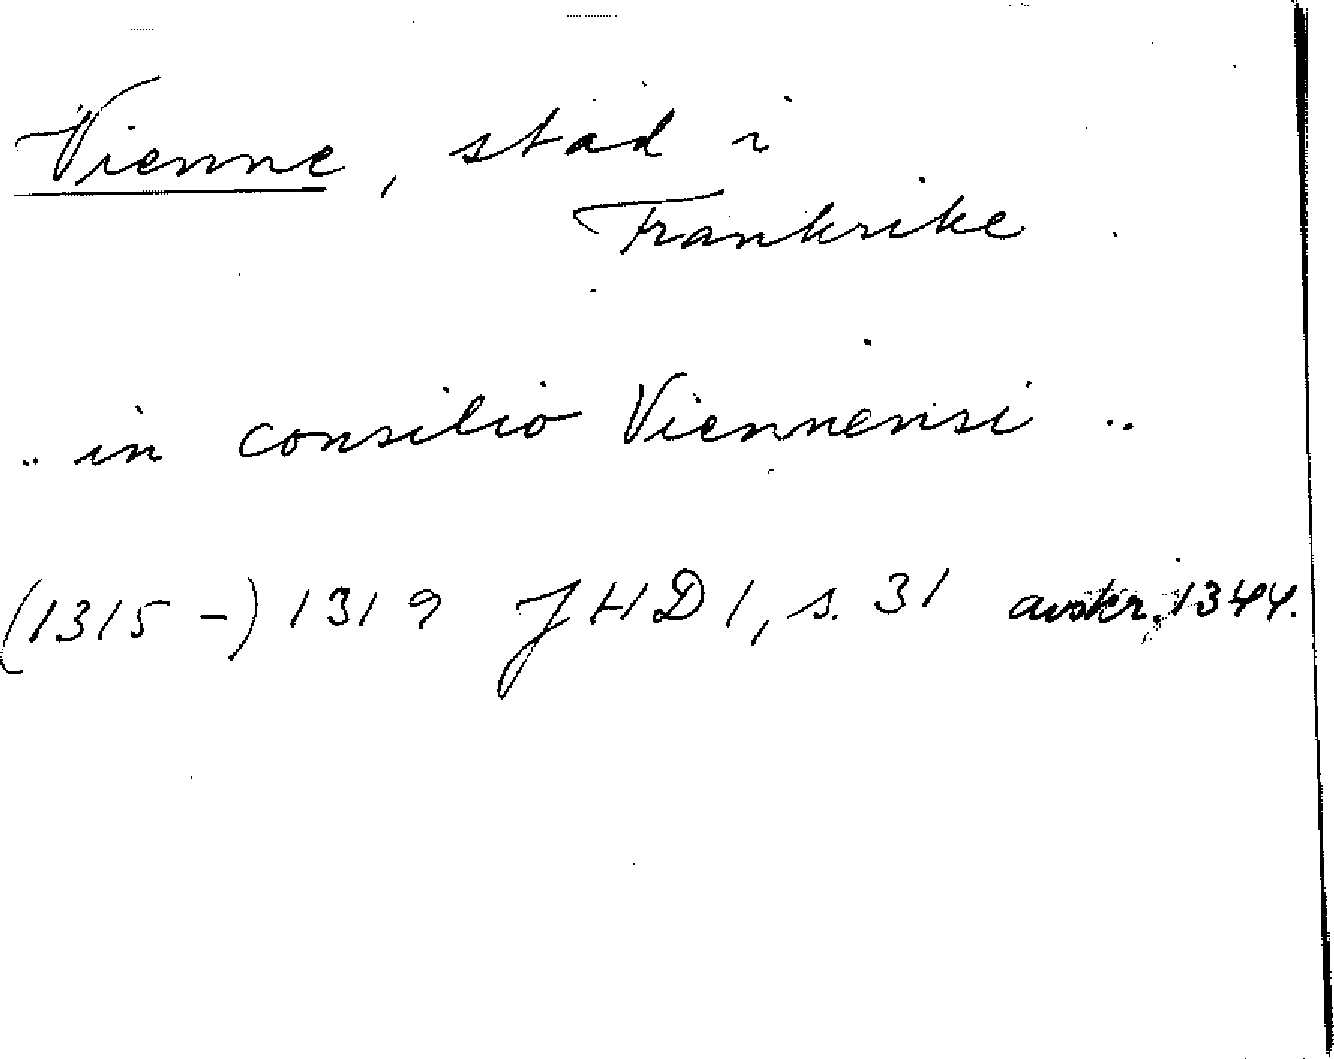 Vienne, stad i
Frankrike.
.. in consilio Viennensi ..
(1315-) 1319 JHD 1, s. 31 avskr. 1344.